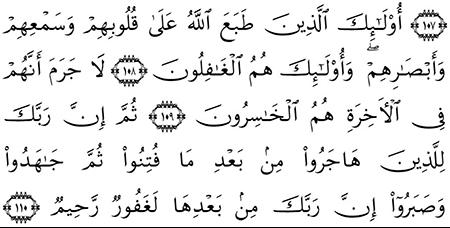 ﴿١٠٧﴾ أُوْلَـٰٓئِكَ ٱلَّذِينَ طَبَعَ ٱللَّهُ عَلَىٰ قُلُوبِهِمْ وَسَمْعِهِمْ
وَأَبْصَـٰرِهِمْ ۖ وَأُوْلَـٰٓئِكَ هُمُ ٱلْغَـٰفِلُونَ ﴿١٠٨﴾ لَا جَرَمَ أَنَّهُمْ
فِى ٱلْـَٔاخِرَةِ هُمُ ٱلْخَـٰسِرُونَ ﴿١٠٩﴾ ثُمَّ إِنَّ رَبَّكَ
لِلَّذِينَ هَاجَرُواْ مِنۢ بَعْدِ مَا فُتِنُواْ ثُمَّ جَـٰهَدُواْ
وَصَبَرُوٓاْ إِنَّ رَبَّكَ مِنۢ بَعْدِهَا لَغَفُورٌ رَّحِيمٌ ﴿١١٠﴾